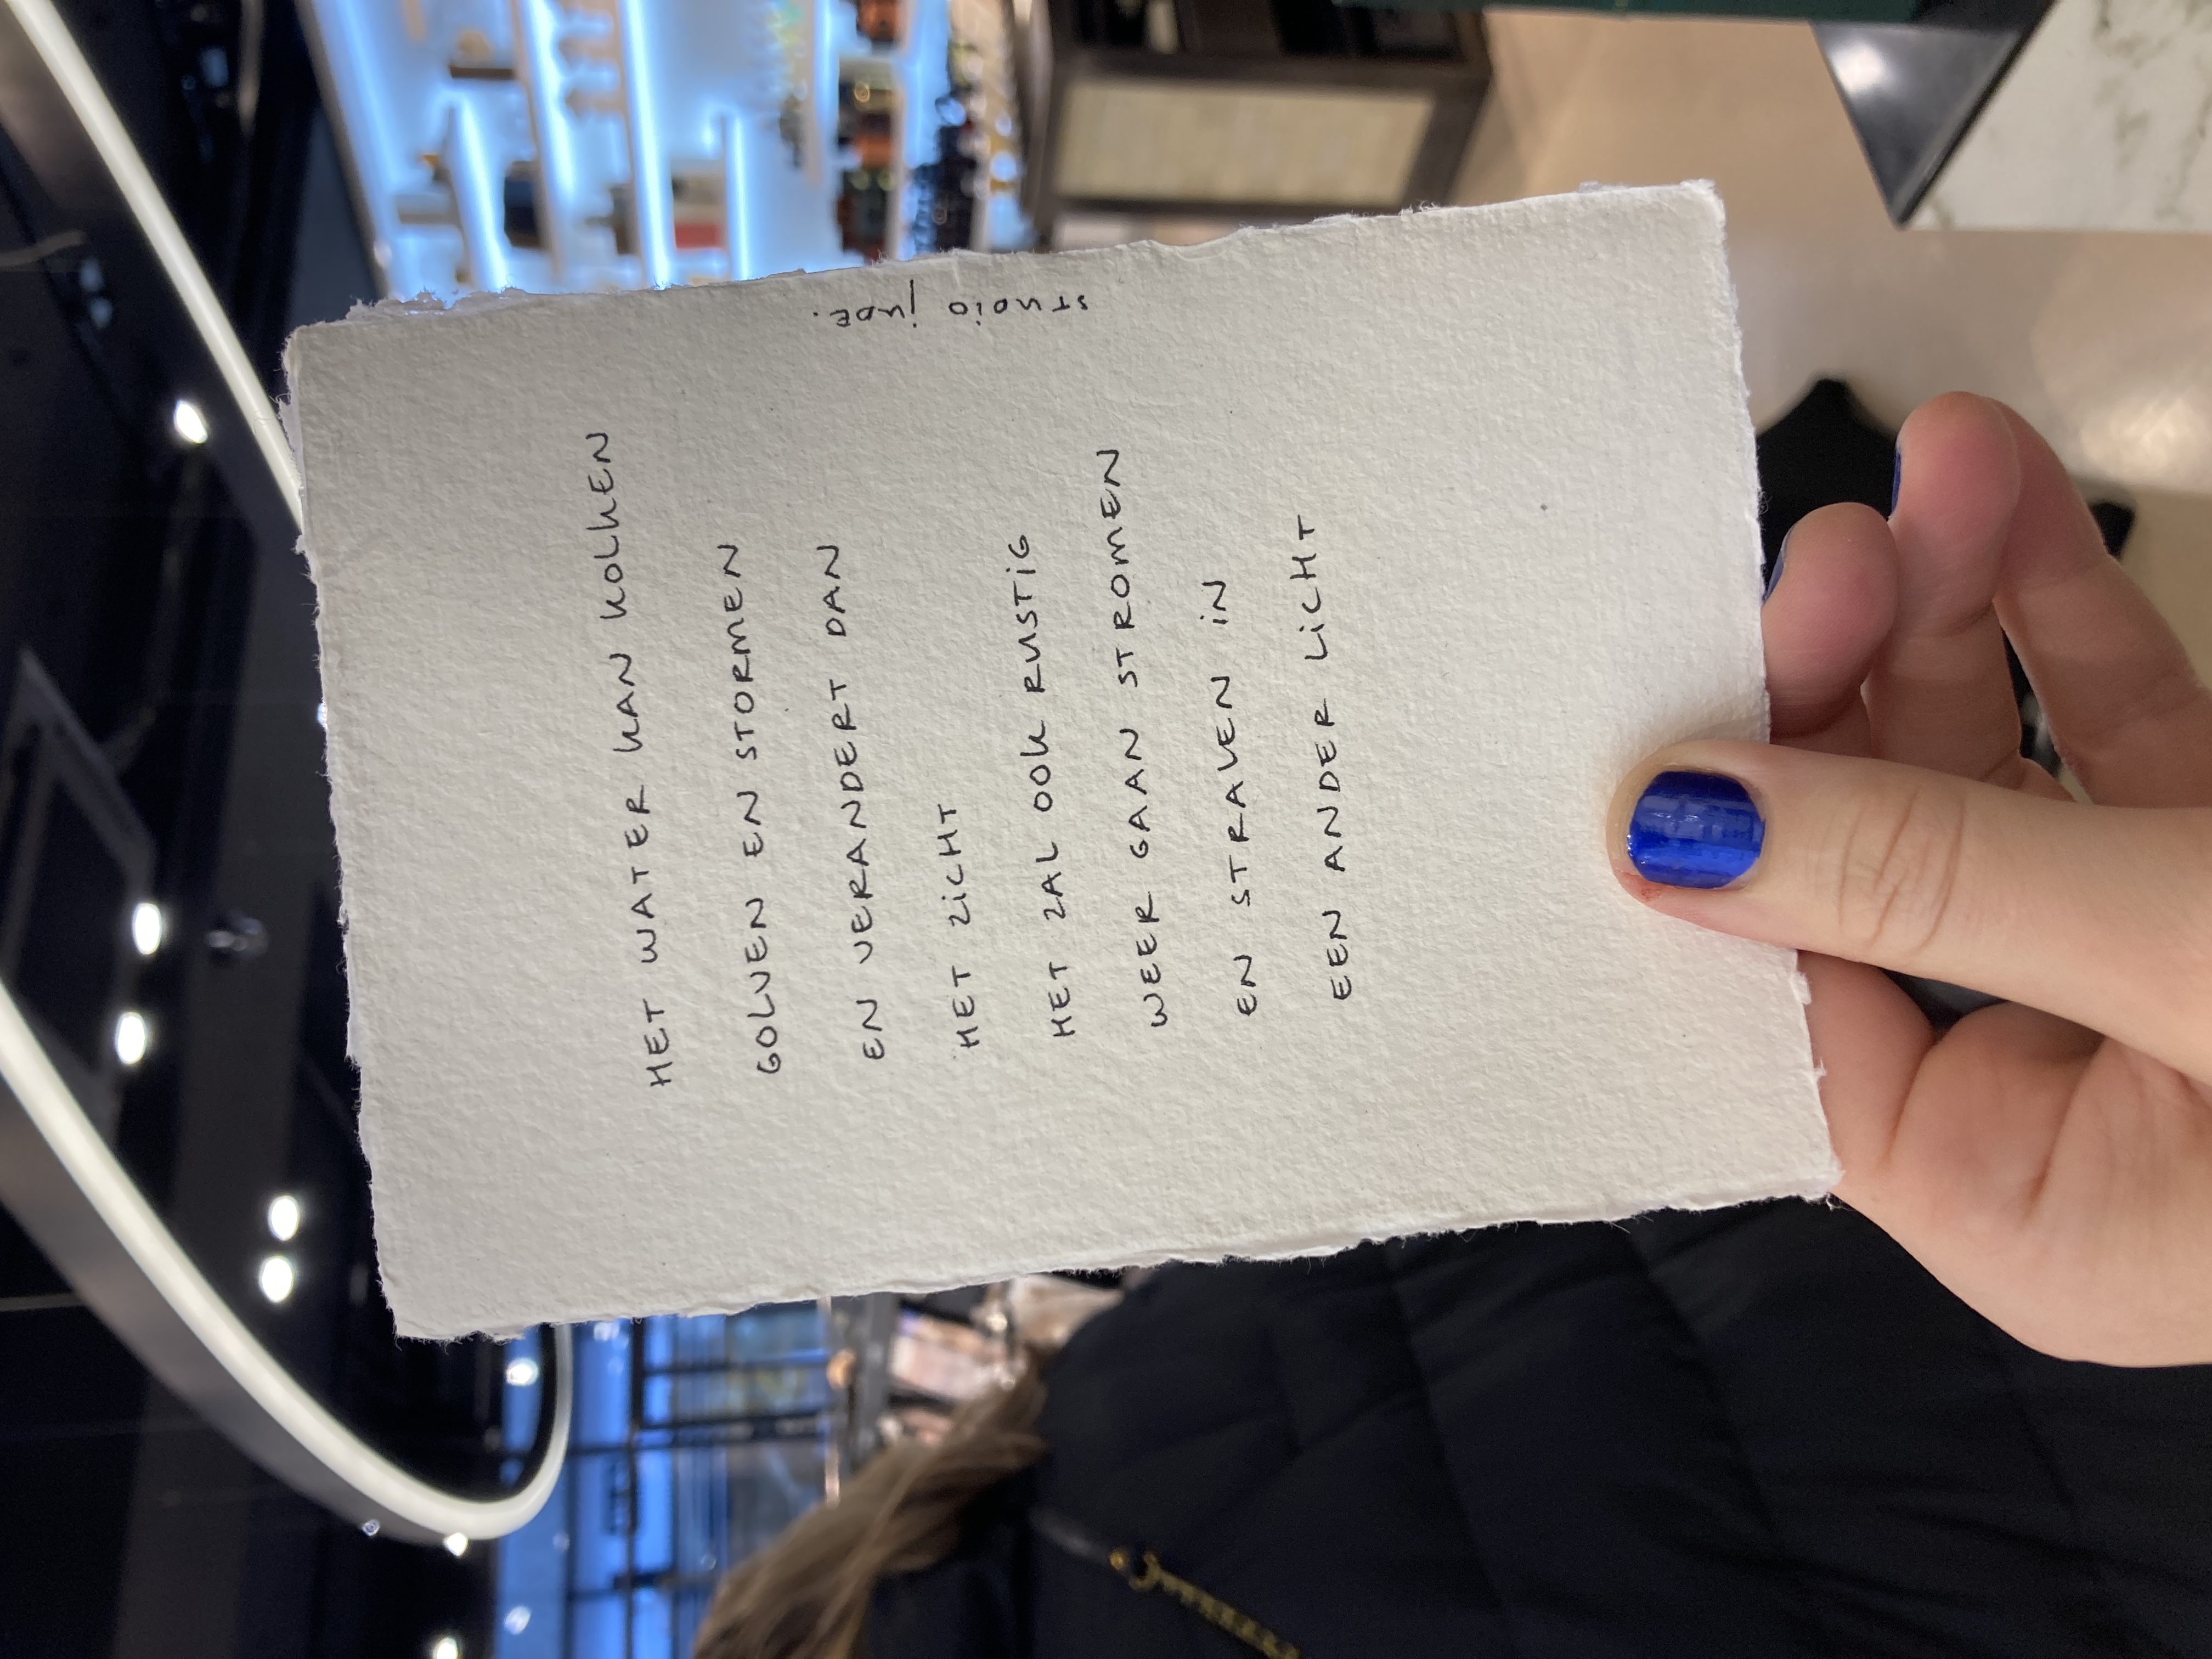 HET WATER KAN KOLKEN
GOLVEN EN STORMEN
EN VERANDERT DAN
HET ZiCHT
HET ZAL OOK RUSTiG
WEER GAAN STROMEN
EN STRALEN iN
EEN ANDER LiCHT
STUDiO jUDE.